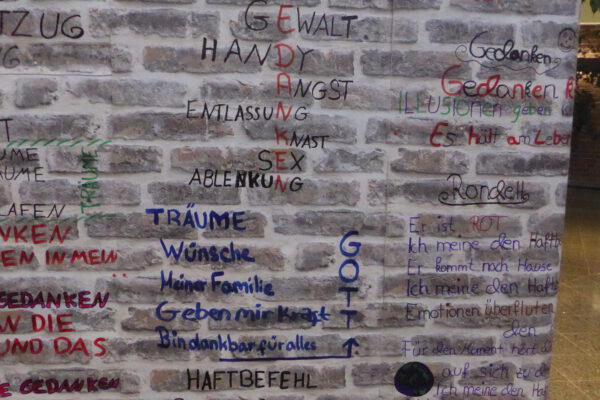 TZUG
G
T
UME
UME
TRÄUME
LAFEN
NKEN
EN IN MEIN
GEDANKEN
N DIE
UND DAS
E GEDANKEN
GEWALT.
HANDY
ANGST
ENTLASSUNG
KNAST
SEX
ABLENKUNG
TRÄUME
Wünsche
Meiner Familie
Geben mir Kraft
Bin dankbar für alles
GOTT
HAFTBEFEHL
Gedanken
Gedanken
ILLUSIONEN geben
Es hält am Leben
Rondell
Er ist ROT
Ich meine den Haftb
Er kommt nach Hause
Ich meine den Haftb
Emotionen überfluten
den
Für den Moment hört
auf sich zu d
Ich meine den Haf